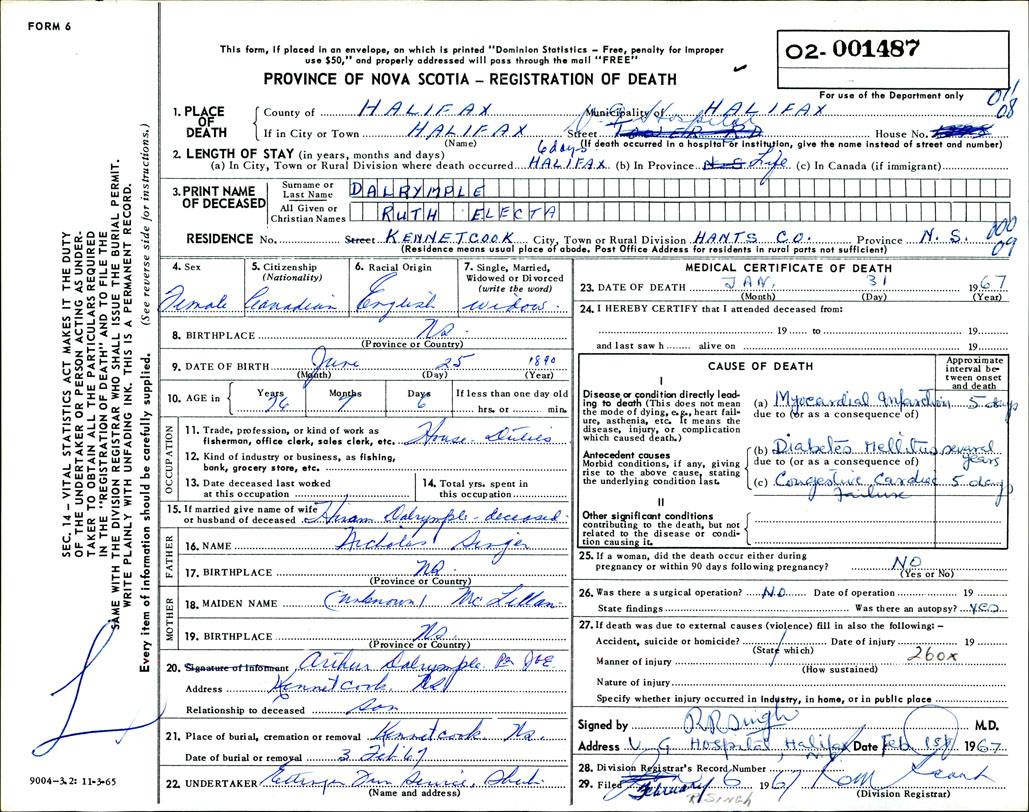 FORM 6
This form, if placed in an envelope, on which is printed "Dominion Statistics – Free, penalty for improper
use $50," and properly addressed will pass through the mail "FREE"
PROVINCE OF NOVA SCOTIA – REGISTRATION OF DEATH
02- 001487
For use of the Department only
011
08
1. PLACE OF DEATH
County of HALIFAX Municipality of HALIFAX
V. G. Hospital
If in City or Town HALIFAX Street House No.
(Name) (If death occurred in a hospital or institution, give the name instead of street and number)
2. LENGTH OF STAY (in years, months and days) 6 days
(a) In City, Town or Rural Division where death occurred HALIFAX (b) In Province N S Life (c) In Canada (if immigrant)
3. PRINT NAME OF DECEASED
Surname or Last Name DALRYMPLE
All Given or Christian Names RUTH ELECTA
RESIDENCE No. Street KENNETCOOK City, Town or Rural Division HANTS CO. Province N. S.
(Residence means usual place of abode. Post Office Address for residents in rural parts not sufficient)
000
09
4. Sex Female
5. Citizenship (Nationality) Canadian
6. Racial Origin English
7. Single, Married, Widowed or Divorced (write the word) widow.
8. BIRTHPLACE Ns.
(Province or Country)
9. DATE OF BIRTH June 25 1890
(Month) (Day) (Year)
10. AGE in Years 76 Months 7 Days 6 If less than one day old hrs. or min.
OCCUPATION
11. Trade, profession, or kind of work as fisherman, office clerk, sales clerk, etc. House Duties
12. Kind of industry or business, as fishing, bank, grocery store, etc.
13. Date deceased last worked at this occupation
14. Total yrs. spent in this occupation
15. If married give name of wife or husband of deceased Hiram Dalrymple - deceased
FATHER
16. NAME Nicholas Singer
17. BIRTHPLACE Ns.
(Province or Country)
MOTHER
18. MAIDEN NAME (unknown) McLellan
19. BIRTHPLACE Ns.
(Province or Country)
20. Signature of informant Arthur Dalrymple
Address Kennetcook, NS
Relationship to deceased son
21. Place of burial, cremation or removal Kennetcook Ns.
Date of burial or removal 3 Feb 67
22. UNDERTAKER
(Name and address)
MEDICAL CERTIFICATE OF DEATH
23. DATE OF DEATH JAN. 31 1967
(Month) (Day) (Year)
24. I HEREBY CERTIFY that I attended deceased from:
19 to 19
and last saw h alive on 19
CAUSE OF DEATH
Approximate interval between onset and death
I
Disease or condition directly leading to death (This does not mean the mode of dying, e.g., heart failure, asthenia, etc. It means the disease, injury, or complication which caused death.)
(a) Myocardial Infarction 5 days
due to (or as a consequence of)
Antecedent causes
Morbid conditions, if any, giving rise to the above cause, stating the underlying condition last.
(b) Diabetes Mellitus several years
due to (or as a consequence of)
(c) Congestive Cardiac Failure 5 days
II
Other significant conditions
contributing to the death, but not related to the disease or condition causing it.
25. If a woman, did the death occur either during
pregnancy or within 90 days following pregnancy? NO
(Yes or No)
26. Was there a surgical operation? NO Date of operation 19
State findings Was there an autopsy? yes
27. If death was due to external causes (violence) fill in also the following:–
Accident, suicide or homicide? Date of injury 19
(State which)
Manner of injury 260x
(How sustained)
Nature of injury
Specify whether injury occurred in industry, in home, or in public place
Signed by R R Singh M.D.
Address V. G. Hospital Halifax Date Feb 1st 1967
28. Division Registrar's Record Number
29. Filed February 6 1967
(Division Registrar)
R SINGH
SEC. 14 – VITAL STATISTICS ACT MAKES IT THE DUTY
OF THE UNDERTAKER OR PERSON ACTING AS UNDER-
TAKER TO OBTAIN ALL THE PARTICULARS REQUIRED
IN THE "REGISTRATION OF DEATH" AND TO FILE THE
SAME WITH THE DIVISION REGISTRAR WHO SHALL ISSUE THE BURIAL PERMIT.
WRITE PLAINLY WITH UNFADING INK. THIS IS A PERMANENT RECORD.
Every item of information should be carefully supplied. (See reverse side for instructions.)
9004–3.2: 11-3-65